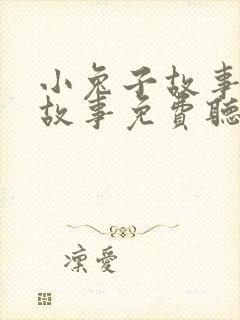 小兔子故事
故事免費聽
凜愛